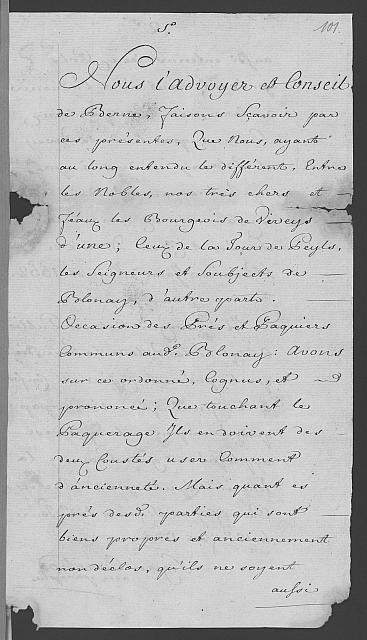 S.º
101.
Nous l'advoyer et Conseil
de Berne, faisons sçavoir par
ces présentes, Que Nous, ayant
au long entendu le différent, Entre
les Nobles, nos très chers et
féaux les Bourgeois de Veveys
d'une; Ceux de la Tour de Peyls,
les Seigneurs et Soubjects de
Blonay, d'autre part.
Occasion des Prés et Paquiers
Communs aud.t Blonay: Avons
sur ce ordonné, Cognus, et
prononcé; Que touchant le
Paquerage Ils en doivent des
deux Coustés user Comment
d'ancienneté. Mais quant es
prés desd.t parties qui sont
biens propres et anciennement
non déclos, qu'ils ne soyent
aussi